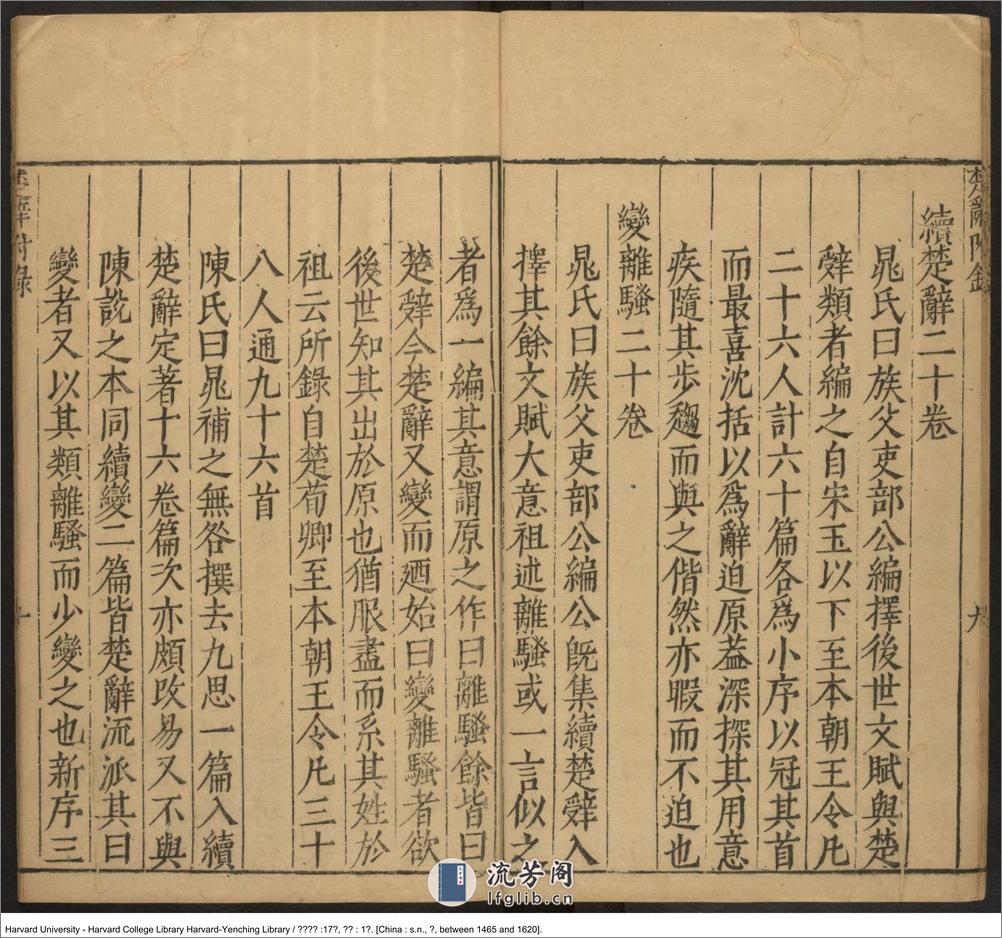 楚辭附錄
續楚辭二十卷
晁氏曰族父吏部公編擇後世文賦與楚
辭類者編之自宋玉以下至本朝王令凡
二十六人計六十篇各爲小序以冠其首
而最喜沈括以爲辭迫原葢深探其用意
疾隨其步趨而與之偕然亦暇而不迫也
變離騷二十卷
晁氏曰族父吏部公編公旣集續楚辭入
擇其餘文賦大意祖述離騷或一言似之
九
者爲一編其意謂原之作曰離騷餘皆曰
楚辭今楚辭又變而廼始曰變離騷者欲
後世知其出於原也猶服盡而系其姓於
祖云所錄自楚荀卿至本朝王令凡三十
八人通九十六首
陳氏曰晁補之無咎撰去九思一篇入續
楚辭定著十六卷篇次亦頗改易又不與
陳說之本同續變二篇皆楚辭流派其曰
變者又以其類離騷而少變之也新序三
楚辭附錄
十
流芳阁
lfglib.cn
Harvard University - Harvard College Library Harvard-Yenching Library / ???? :17?, ?? : 1?. [China : s.n., ?, between 1465 and 1620].